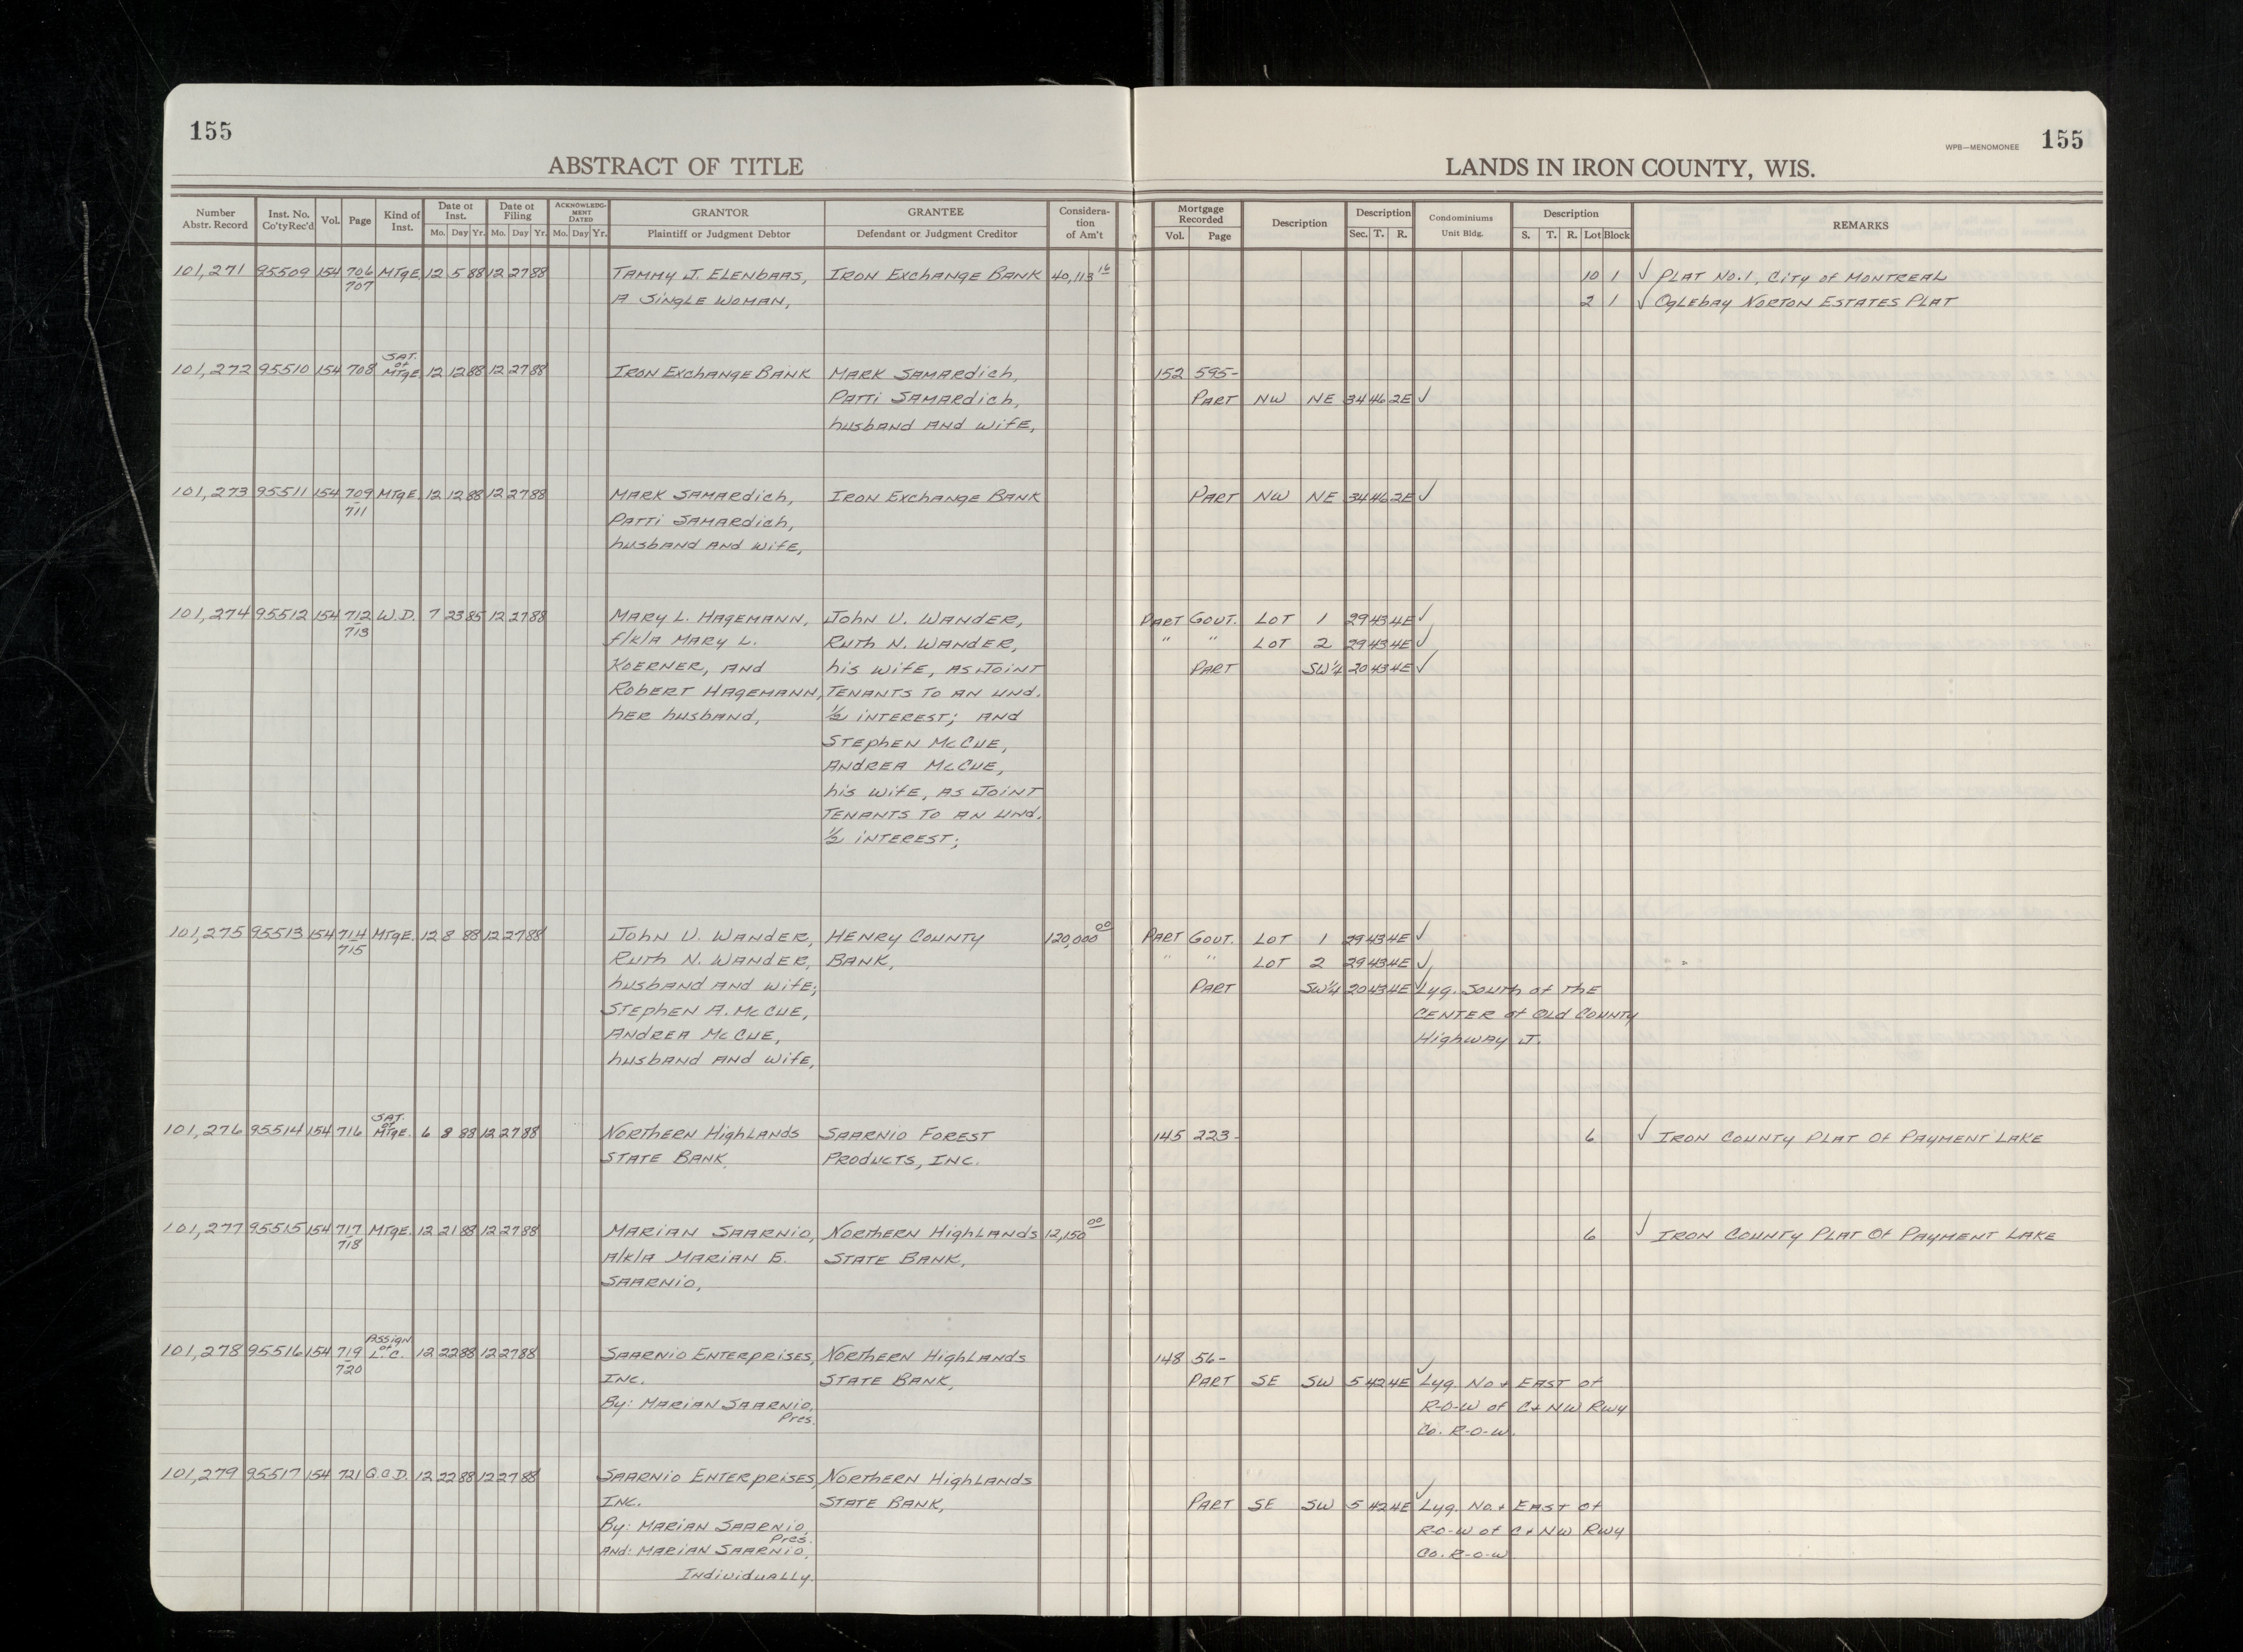 155
ABSTRACT OF TITLE
WPB—MENOMONEE 155
LANDS IN IRON COUNTY, WIS.
Number Abstr. Record Inst. No. Co'ty Rec'd Vol. Page Kind of Inst. Date of Inst. Mo. Day Yr. Date of Filing Mo. Day Yr. ACKNOWLEDGMENT DATED Mo. Day Yr. GRANTOR Plaintiff or Judgment Debtor GRANTEE Defendant or Judgment Creditor Consideration of Am't Mortgage Recorded Vol. Page Description Description Sec. T. R. Condominiums Unit Bldg. Description S. T. R. Lot Block REMARKS
101,271 95509 154 706 MTgE. 12 5 88 12 27 88 TAMMY J. ELENBAAS, IRON EXCHANGE BANK 40,113 16 10 1 ✓ PLAT NO. 1, CITY of MONTREAL
707 A SINGLE WOMAN, 2 1 ✓ OGLEBAY NORTON ESTATES PLAT
SAT. of
101,272 95510 154 708 MTgE 12 12 88 12 27 88 IRON EXCHANGE BANK MARK SAMARDICH, 152 595-
PATTI SAMARDICH, PART NW NE 34 46 2E ✓
husband AND WIFE,
101,273 95511 154 709 MTgE. 12 12 88 12 27 88 MARK SAMARDICH, IRON EXCHANGE BANK PART NW NE 34 46 2E ✓
- 711 PATTI SAMARDICH,
husband AND WIFE,
101,274 95512 154 712 W.D. 7 23 85 12 27 88 MARY L. HAGEMANN, JOHN V. WANDER, PART GOVT. LOT 1 29 43 4E ✓
713 f/k/a MARY L. RUTH N. WANDER, " " LOT 2 29 43 4E ✓
KOERNER, AND his WIFE, AS JOINT PART SW¼ 20 43 4E ✓
ROBERT HAGEMANN, TENANTS TO AN UND.
HER husband, ½ INTEREST; AND
STEPHEN McCUE,
ANDREA McCUE,
his WIFE, AS JOINT
TENANTS TO AN UND.
½ INTEREST;
101,275 95513 154 714 MTgE. 12 8 88 12 27 88 JOHN V. WANDER, HENRY COUNTY 120,000 00 PART GOVT. LOT 1 29 43 4E ✓
715 RUTH N. WANDER, BANK, " " LOT 2 29 43 4E ✓
husband AND WIFE; PART SW¼ 20 43 4E ✓ Lyg. SOUTH of THE
STEPHEN A. McCUE, CENTER of OLD COUNTY
ANDREA McCUE, HIGHWAY J.
husband AND WIFE,
SAT. of
101,276 95514 154 716 MTgE. 6 8 88 12 27 88 NORTHERN HIGHLANDS SAARNIO FOREST 145 223- 6 ✓ IRON COUNTY PLAT OF PAYMENT LAKE
STATE BANK, PRODUCTS, INC.
101,277 95515 154 717 MTgE. 12 21 88 12 27 88 MARIAN SAARNIO, NORTHERN HIGHLANDS 12,150 00 6 ✓ IRON COUNTY PLAT OF PAYMENT LAKE
718 a/k/a MARIAN E. STATE BANK,
SAARNIO,
ASSIGN of
101,278 95516 154 719 L.C. 12 22 88 12 27 88 SAARNIO ENTERPRISES, NORTHERN HIGHLANDS 148 56-
720 INC. STATE BANK, PART SE SW 5 42 4E ✓ Lyg. No + EAST of
By: MARIAN SAARNIO, Pres. R-O-W of C+NW RWY
Co. R-O-W.
101,279 95517 154 721 Q.C.D. 12 22 88 12 27 88 SAARNIO ENTERPRISES, NORTHERN HIGHLANDS
INC. STATE BANK, PART SE SW 5 42 4E ✓ Lyg. No. + EAST of
By: MARIAN SAARNIO, Pres. R-O-W of C+NW RWY
And: MARIAN SAARNIO, Co. R-O-W
Individually.